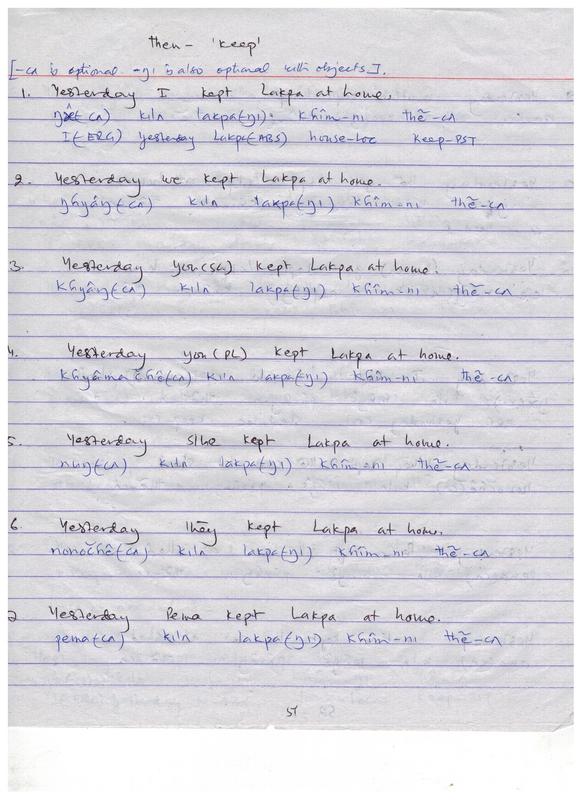 then - 'keep'
[-cʌ is optional -ŋi is also optional with objects].
1. Yesterday I kept Lakpa at home.
kiln lakpa(ŋi) khîm-ni thẽ-cʌ
I(ERG) yesterday Lakpa(ABS) house-LOC keep-PST
2. Yesterday we kept Lakpa at home.
ŋhyâŋ(cʌ) kiln lakpa(ŋi) khîm-ni thẽ-cʌ
3. Yesterday you(SG) kept Lakpa at home.
khyâŋ(cʌ) kiln lakpa(ŋi) khîm-ni thẽ-cʌ
4. Yesterday you(PL) kept Lakpa at home.
khyâma čhê(cʌ) kiln lakpa(ŋi) khîm-ni thẽ-cʌ
5. Yesterday s/he kept Lakpa at home.
nuŋ(cʌ) kiln lakpa(ŋi) khîm-ni thẽ-cʌ
6. Yesterday they kept Lakpa at home.
nonočhê(cʌ) kiln lakpa(ŋi) khîm-ni thẽ-cʌ
7 Yesterday Pema kept Lakpa at home.
pema(cʌ) kiln lakpa(ŋi) khîm-ni thẽ-cʌ
57